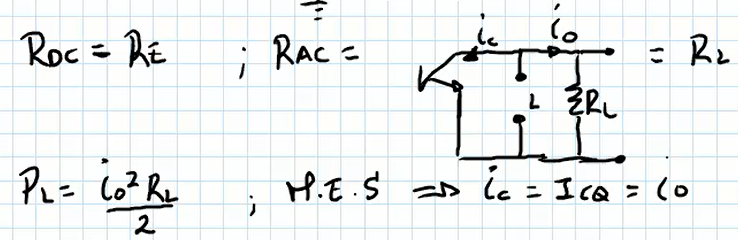 RDC = RE ; RAC = ic io L RL = RL
PL = io² RL / 2 ; M.E.S ⇒ ic = ICQ = io